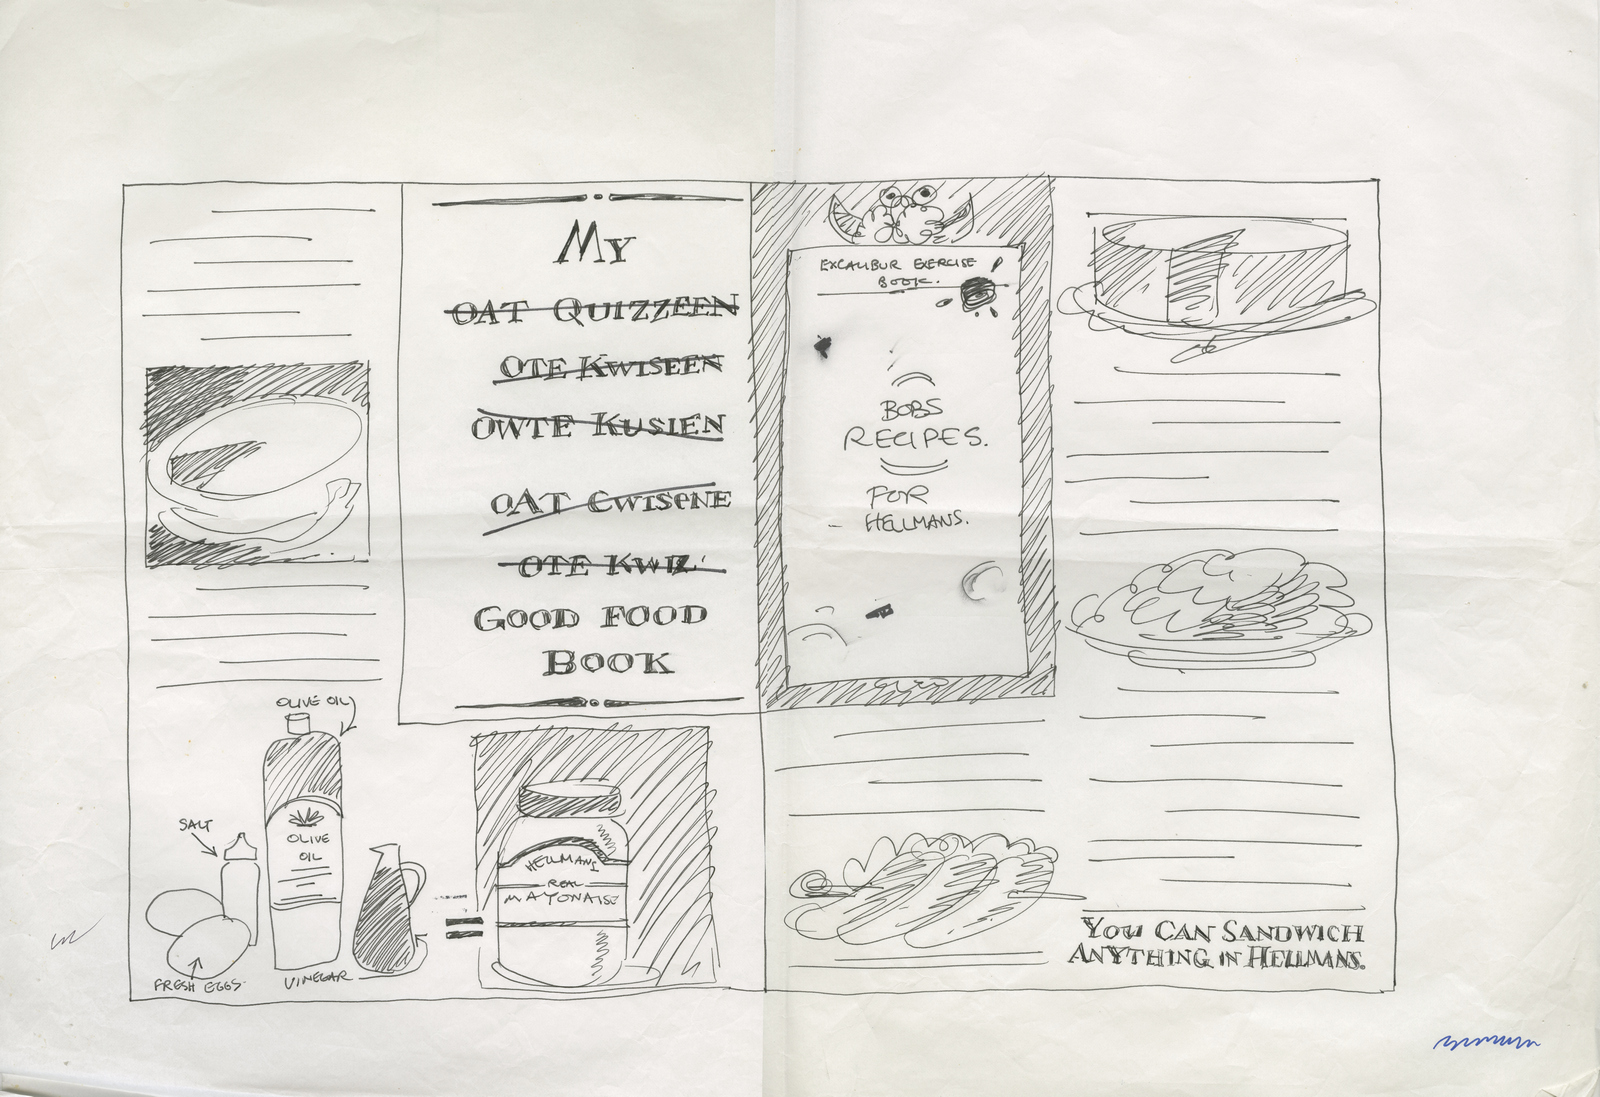 My
OAT QUIZZEEN
OTE KWISEEN
OWTE KUSIEN
OAT CWISENE
OTE KWIZ
GOOD FOOD
BOOK
EXCALIBUR EXERCISE
BOOK.
BOBS
RECIPES.
FOR
HELLMANS.
OLIVE OIL
SALT
OLIVE
OIL
FRESH EGGS
VINEGAR
=
HELLMANS
REAL
MAYONAISE
YOU CAN SANDWICH
ANYTHING IN HELLMANS.